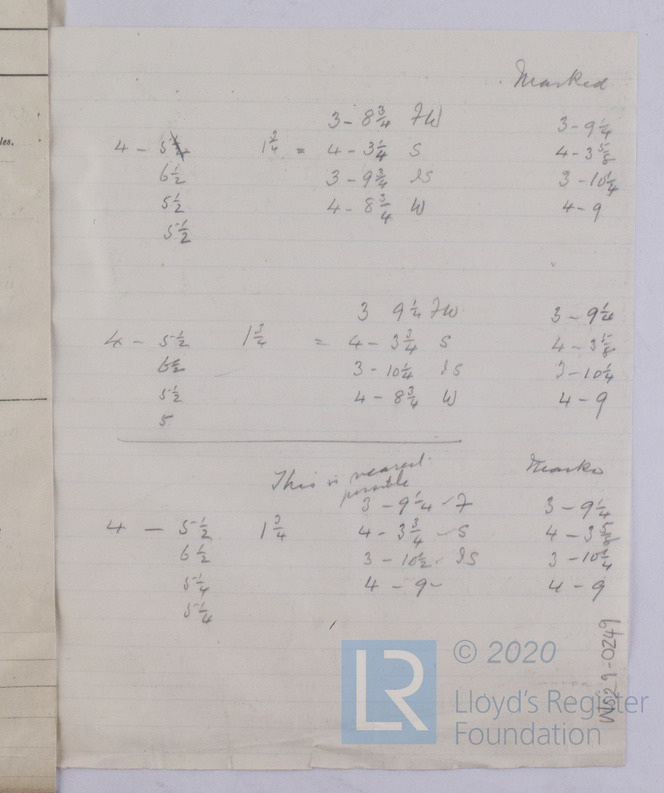 les.
Marked
3 - 8 3/4 FW 3 - 9 1/4
4 - 5 1 3/4 = 4 - 3 1/4 S 4 - 3 5/8
6 1/2 3 - 9 3/4 IS 3 - 10 1/4
5 1/2 4 - 8 3/4 W 4 - 9
5 1/2
3 9 1/4 FW 3 - 9 1/4
4 - 5 1/2 1 3/4 = 4 - 3 3/4 S 4 - 3 5/8
6 1/2 3 - 10 1/4 IS 3 - 10 1/4
5 1/2 4 - 8 3/4 W 4 - 9
5
This is nearest possible
Marks
3 - 9 1/4 - F 3 - 9 1/4
4 - 5 1/2 1 3/4 4 - 3 3/4 - S 4 - 3 5/8
6 1/2 3 - 10 1/2 - IS 3 - 10 1/4
5 1/4 4 - 9 - 4 - 9
5 1/4
W529-0249
LR
© 2020
Lloyd's Register
Foundation